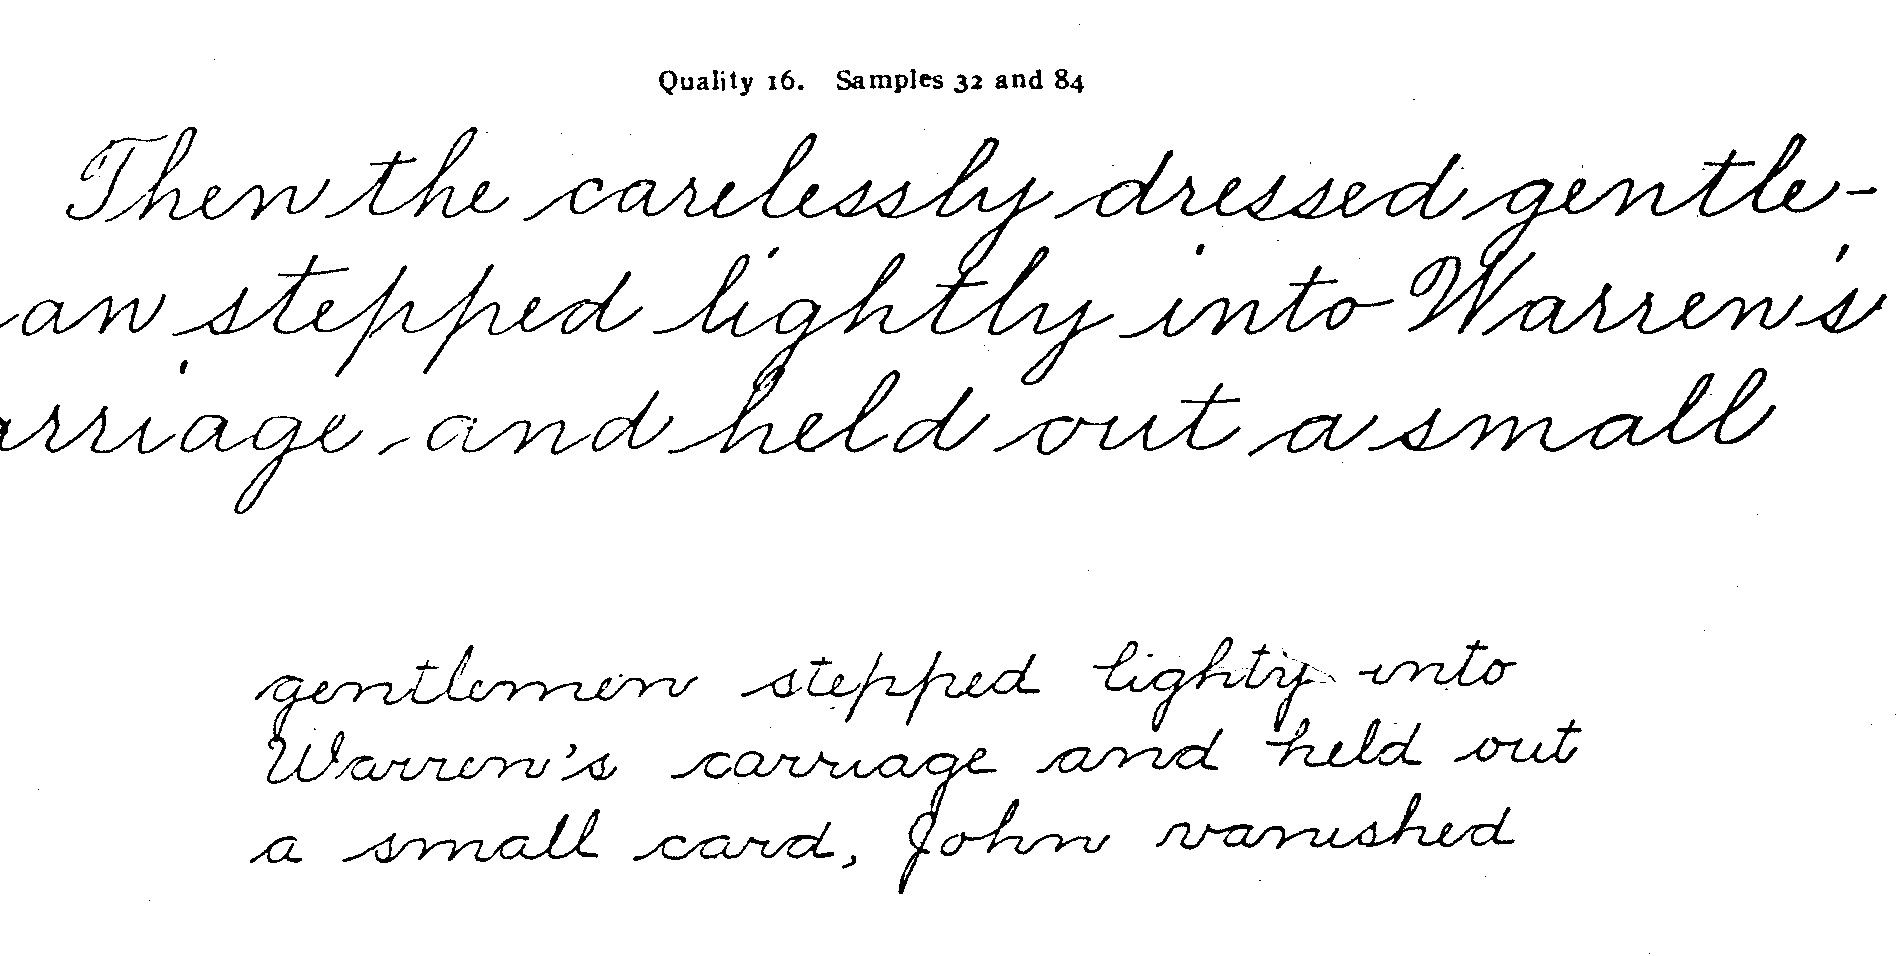 Quality 16. Samples 32 and 84
Then the carelessly dressed gentle-
an stepped lightly into Warren's
arriage and held out a small
gentlemen stepped lighty into
Warren's carriage and held out
a small card, John vanished